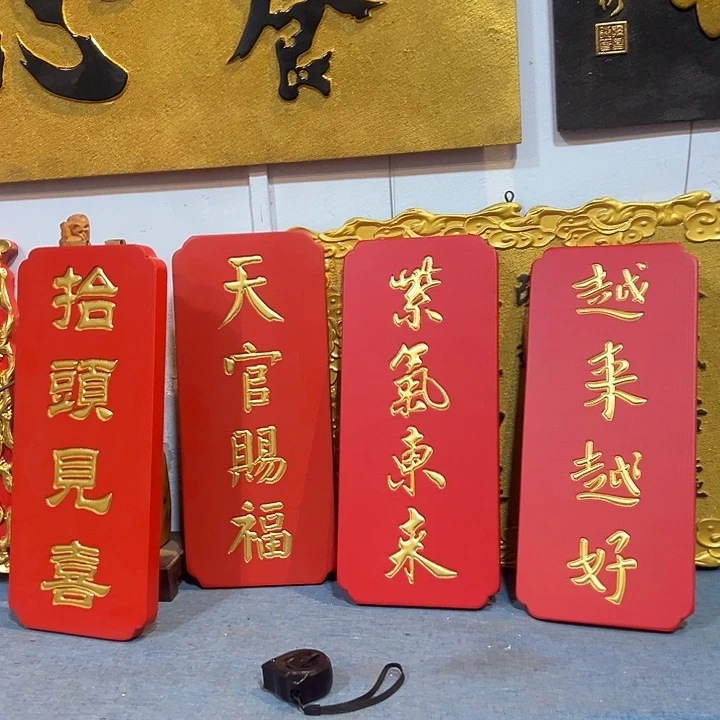 抬頭見喜
天官賜福
紫氣東來
越来越好